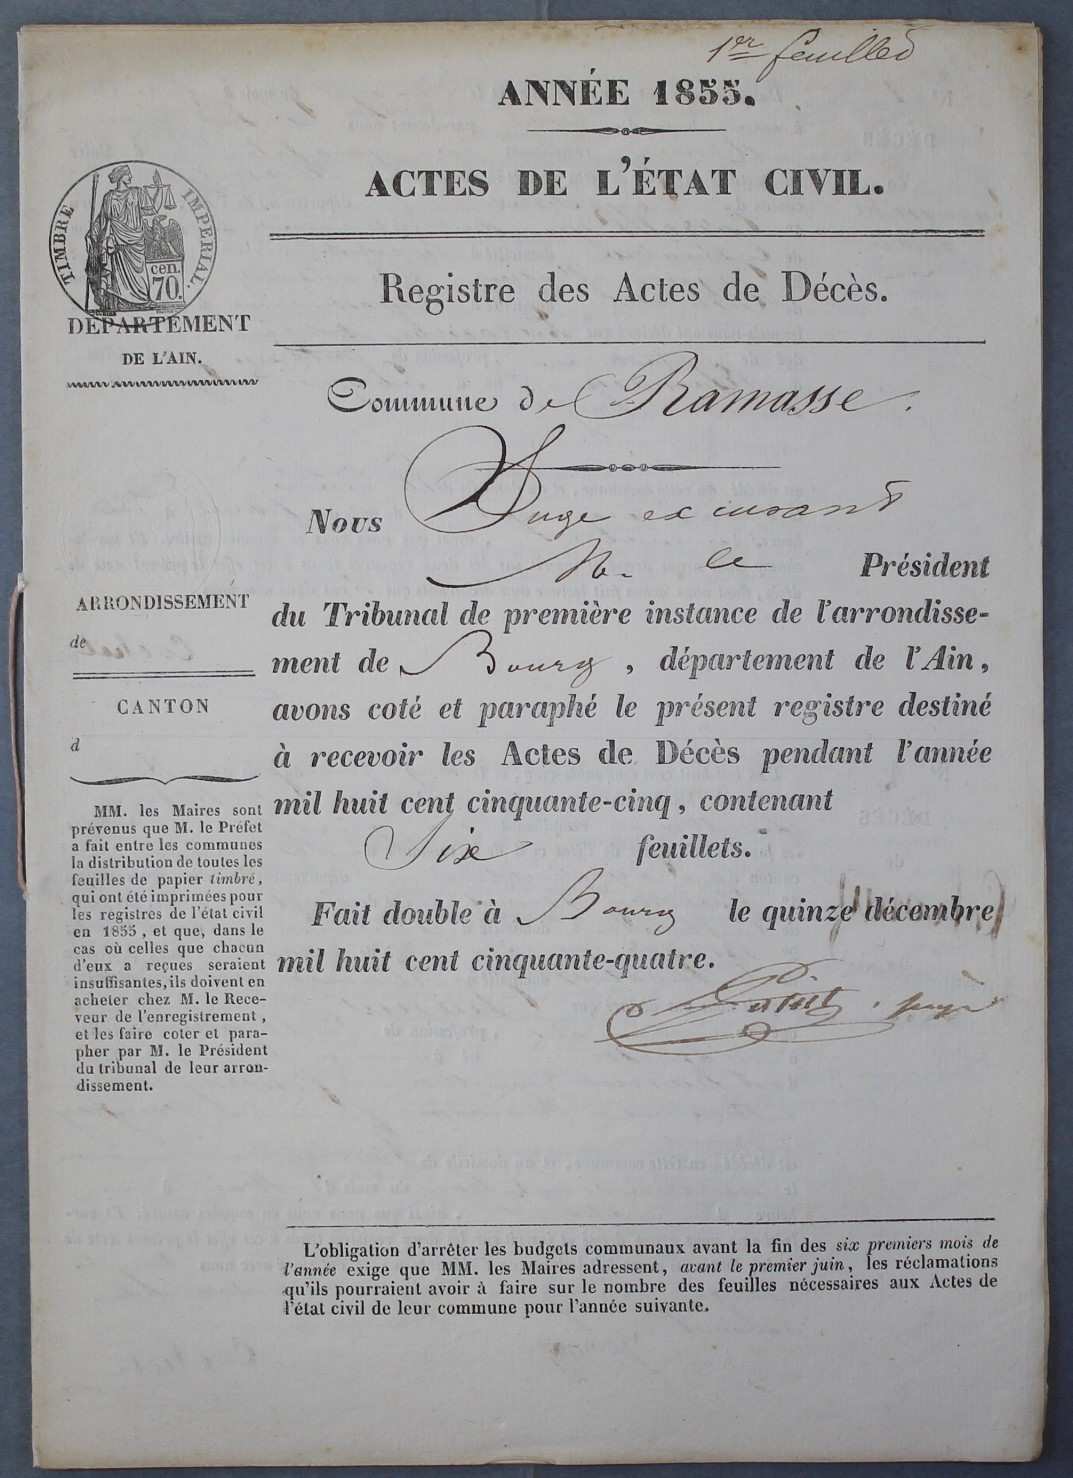 1er feuillet
ANNÉE 1855.
ACTES DE L'ÉTAT CIVIL.
TIMBRE IMPÉRIAL.
cen.
70.
DÉPARTEMENT
DE L'AIN.
Registre des Actes de Décès.
Commune de Ramasse.
Nous Juge exerçant
M. le Président
du Tribunal de première instance de l'arrondisse-
ment de Bourg, département de l'Ain,
avons coté et paraphé le présent registre destiné
à recevoir les Actes de Décès pendant l'année
mil huit cent cinquante-cinq, contenant
Six feuillets.
Fait double à Bourg le quinze décembre
mil huit cent cinquante-quatre.
juge
ARRONDISSEMENT
de
CANTON
d
MM. les Maires sont
prévenus que M. le Préfet
a fait entre les communes
la distribution de toutes les
feuilles de papier timbré,
qui ont été imprimées pour
les registres de l'état civil
en 1855, et que, dans le
cas où celles que chacun
d'eux a reçues seraient
insuffisantes, ils doivent en
acheter chez M. le Rece-
veur de l'enregistrement,
et les faire coter et para-
pher par M. le Président
du tribunal de leur arron-
dissement.
L'obligation d'arrêter les budgets communaux avant la fin des six premiers mois de
l'année exige que MM. les Maires adressent, avant le premier juin, les réclamations
qu'ils pourraient avoir à faire sur le nombre des feuilles nécessaires aux Actes de
l'état civil de leur commune pour l'année suivante.